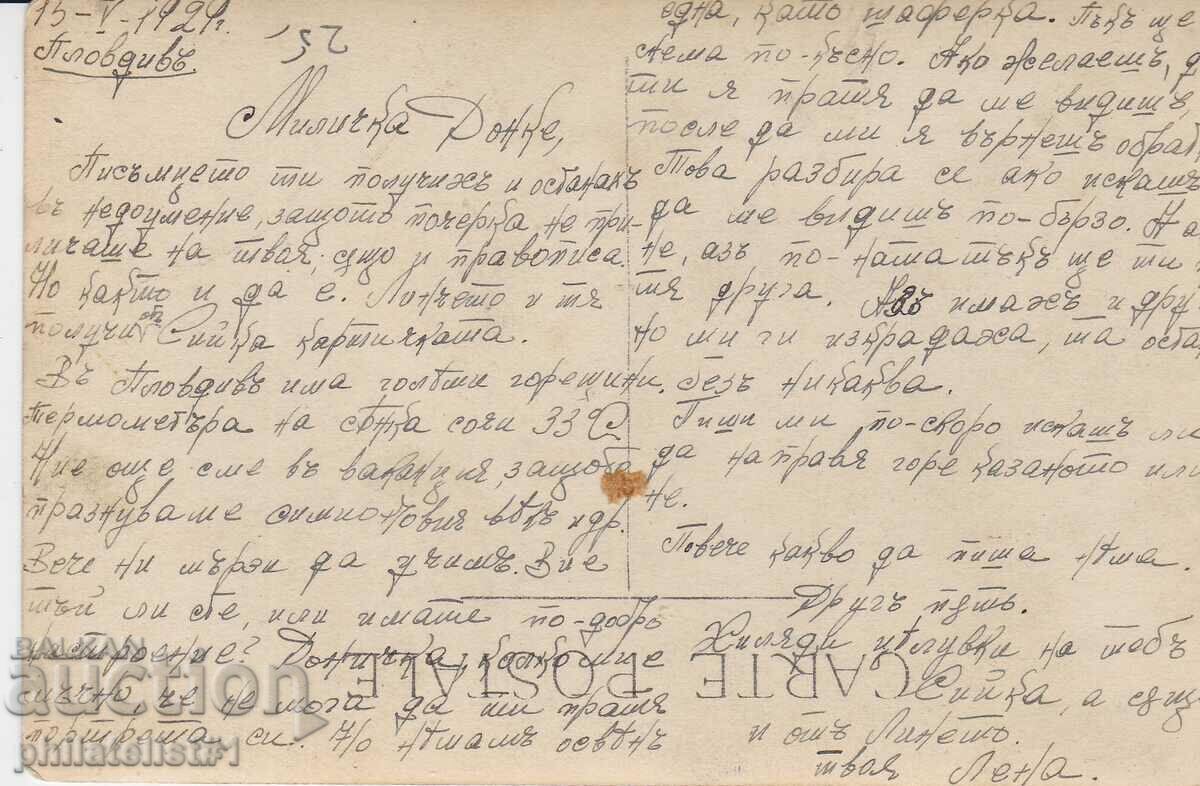 15-V-1929г.
Пловдивъ.
25'
Миличка Донке,
Писъмцето ти получихъ и останахъ
въ недоумение, защото почерка не при-
личаше на твоя, също и правописа.
Но както и да е. Линчето и тя
получи отъ Сийка картичката.
Въ Пловдивъ има големи горещини.
Термометъра на сѣнка сочи 33°
Ние още сме въ ваканция, защото
празнуваме Симионовия вѣкъ и др.
Вече ни мързи да учимъ. Вие
тъй ли сте, или имате по-добро
настроение? Доничка, колко ми е
мъчно, че не мога да ти пратя
портрета си. Но нѣмамъ освѣнъ
една, като шаферка. Пъкъ ще
снема по-късно. Ако желаешъ, да
ти я пратя да ме видишъ,
после да ми я върнешъ обрат
Това разбира се ако искашъ
да ме видишъ по-бързо. И а
не, азъ по-нататъкъ ще ти
тя друга. Азъ имахъ и дру
но ми ги изкрадаха, та оста
безъ никаква.
Пиши ми по-скоро искашъ ли
да направя горе казаното или
не.
Повече какво да пиша нѣма.
Другъ пѫть.
Хиляди цѣлувки на тебъ
Сийка, а също
и отъ Линето.
твоя Лена.
CARTE POSTALE
BALKAN
auction
philatelist#1